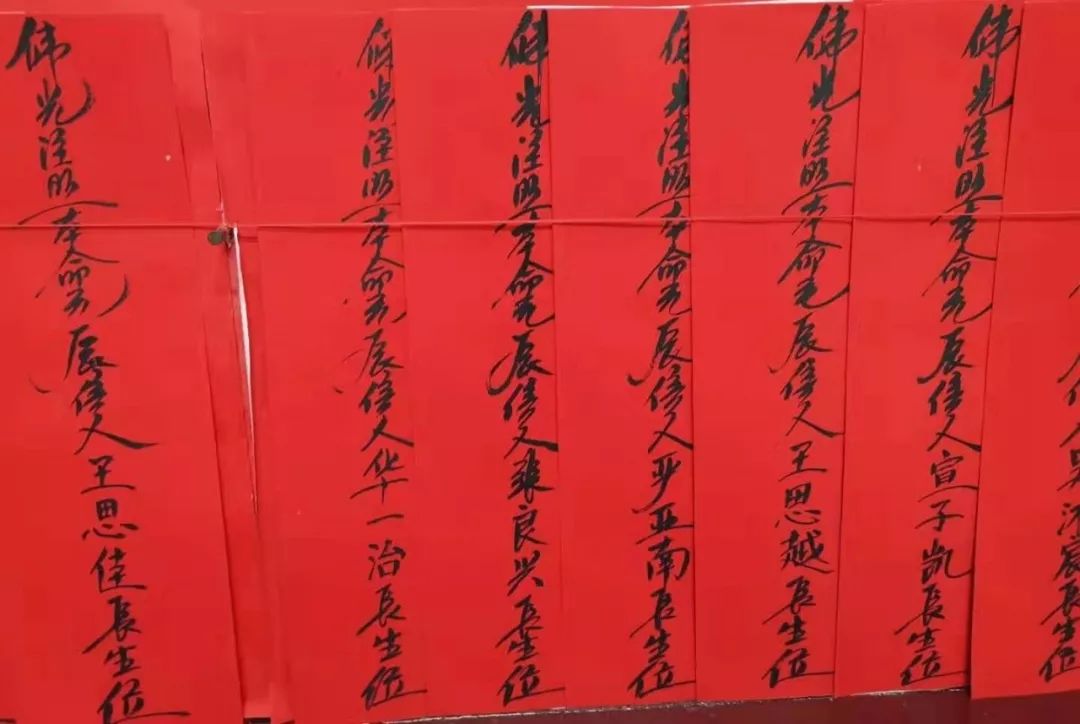 辰信人吴長生位
佛光注照本命元辰信人宣子凯長生位
佛光注照本命元辰信人王思越長生位
佛光注照本命元辰信人亚南長生位
佛光注照本命元辰信人張良兴長生位
佛光注照本命元辰信人华一治長生位
佛光注照本命元辰信人王思佳長生位